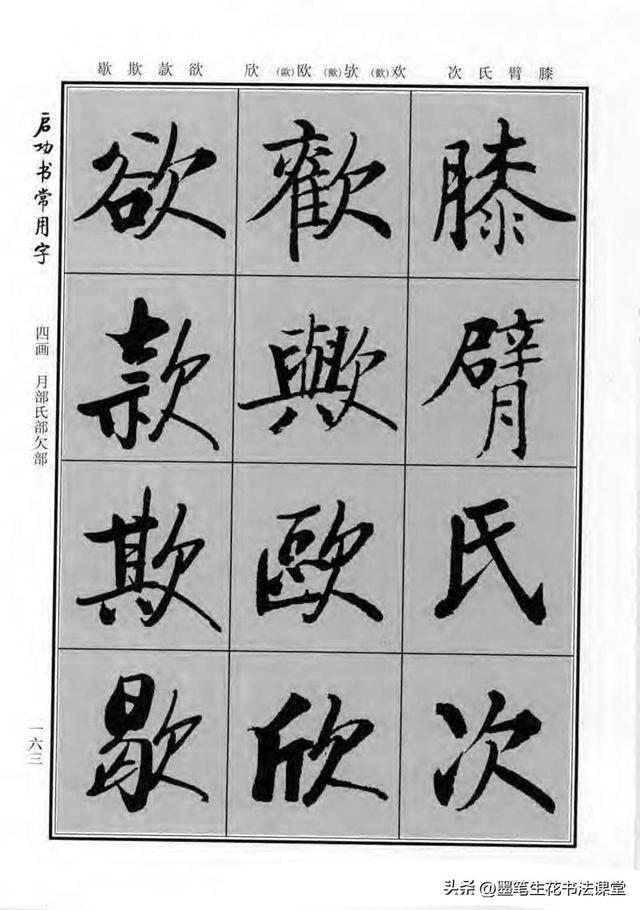 膝臂氏次 欢(歡)欤(歟)欧(歐)欣 欲款欺歇
膝臂氏次
歡歟歐欣
欲款欺歇
启功书常用字
四画 月部氏部欠部
一六三
头条 @墨笔生花书法课堂